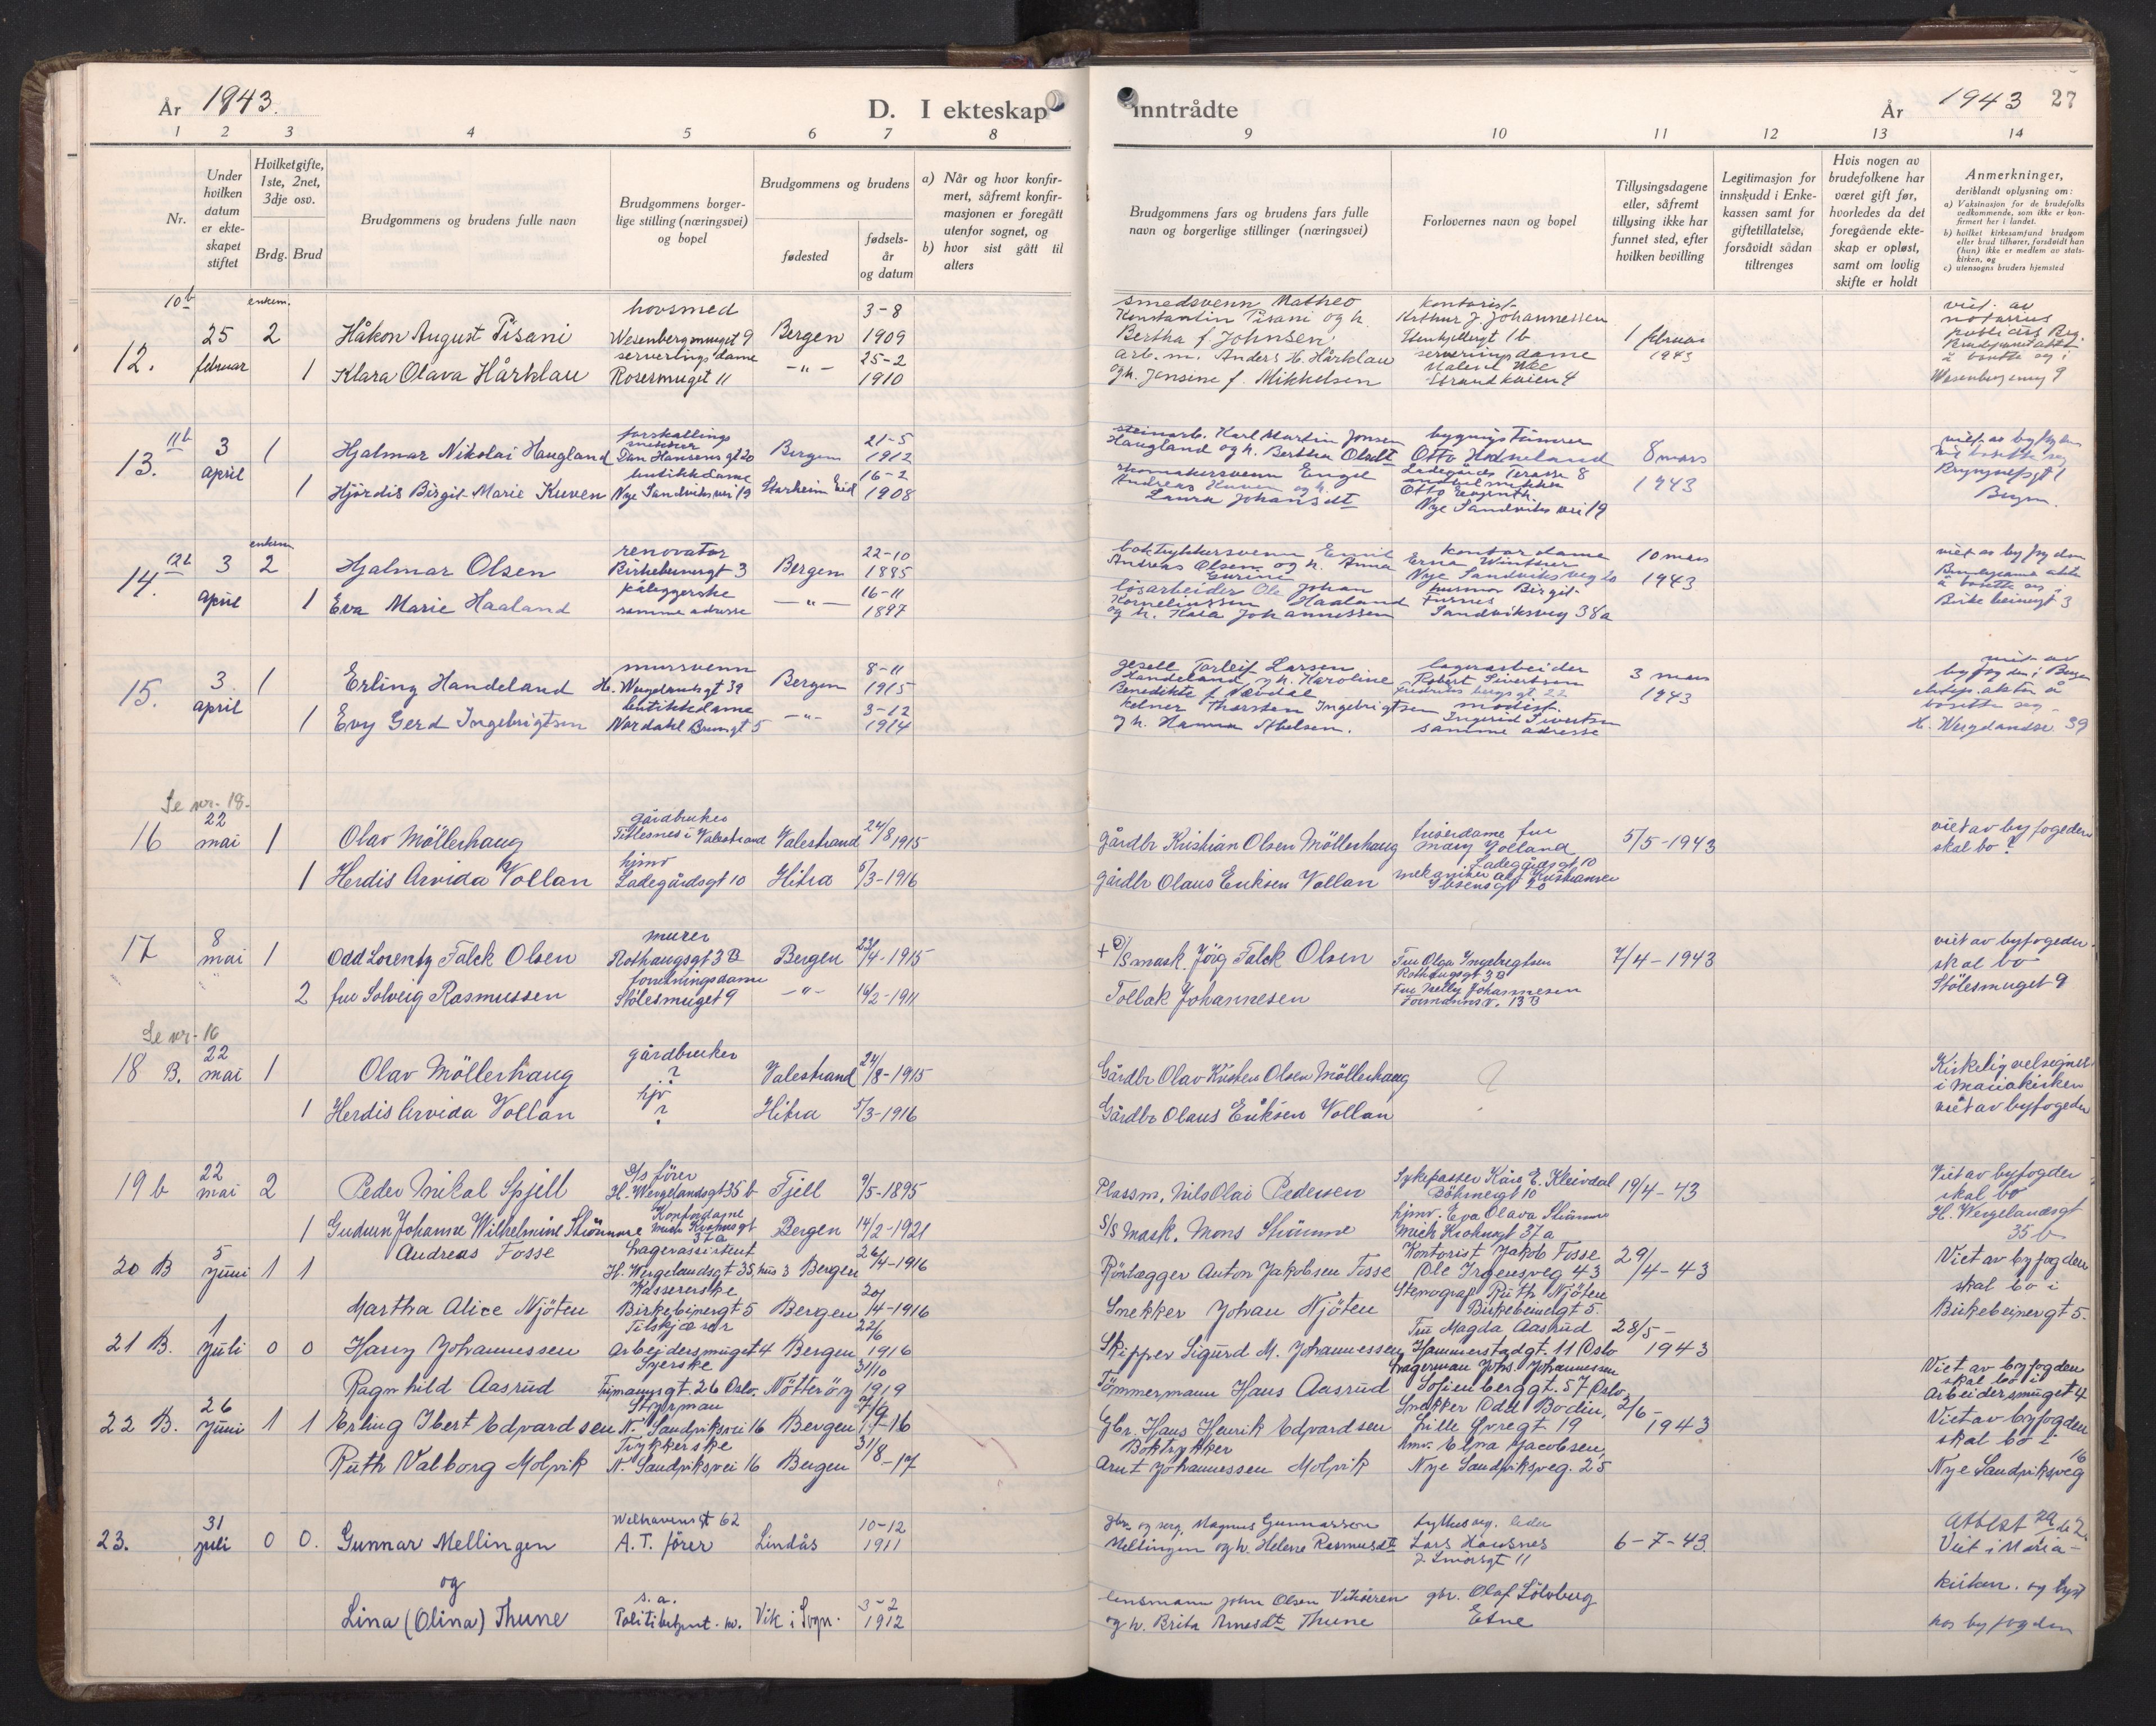 År 1943. D. I ekteskap
inntrådte År 1943 27
1 2 3 4 5 6 7 8
9 10 11 12 13 14
Nr.
Under hvilken datum er ekteskapet stiftet
Hvilket gifte, 1ste, 2net, 3dje osv.
Brdg. Brud
Brudgommens og brudens fulle navn
Brudgommens borgerlige stilling (næringsvei) og bopel
Brudgommens og brudens
fødested
fødselsår og datum
a) Når og hvor konfirmert, såfremt konfirmasjonen er foregått utenfor sognet, og
b) hvor sist gått til alters
Brudgommens fars og brudens fars fulle navn og borgerlige stillinger (næringsvei)
Forlovernes navn og bopel
Tillysingsdagene eller, såfremt tillysing ikke har funnet sted, efter hvilken bevilling
Legitimasjon for innskudd i Enkekassen samt for giftetillatelse, forsåvidt sådan tiltrenges
Hvis nogen av brudefolkene har været gift før, hvorledes da det foregående ekteskap er opløst, samt om lovlig skifte er holdt
Anmerkninger,
deriblandt oplysning om:
a) Vaksinasjon for de brudefolks vedkommende, som ikke er konfirmert her i landet.
b) hvilket kirkesamfund brudgom eller brud tilhører, forsåvidt han (hun) ikke er medlem av statskirken, og
c) utensogns bruders hjemsted
10b
12. 25 februar enkem. 2 Håkon August Pisani hovsmed Wesenbergsmuget 9 Bergen 3-8 1909
1 Klara Olava Hårklau serveringsdame Rosesmuget 11 -"- 25-2 1910
smedsvenn Matheo
Konstantin Pisani og h.
Bertha f Johnsen
arb. m. Anders H. Hårklau
og h. Jensine f. Mikkelsen
kontorist
Arthur J. Johannessen
serveringsdame
Strandkaien 4
1 februar 1943
viet av
notarius
publicus
å bosette seg i
Wesenbergsmug 9
11b
13. 3 april 1 Hjalmar Nikolai Haugland Bergen 21-5 1912
1 Hjördis Birgit Marie Kuven butikkdame Nye Sandviksvei 19 Storheim Eid 16-2 1908
steinarb. Karl Martin Jonsen
Haugland og h. Bertha Olsdt
skomakersvenn Engel
Andreas Kuven og h.
Laura Johansdt
Ladegårds Terasse 8
Nye Sandviks vei 19
8 mars 1943
Bergen
12b
14. 3 april enkem 2 Hjalmar Olsen renovatør Birkebeinergt 3 Bergen 22-10 1895
1 Eva Marie Haaland påleggerske samme adresse -"- 16-11 1897
boktrykkersvenn Emil
Andreas Olsen og h. Anna
løsarbeider Ole Johan
Korneliussen Haaland
og h. Kaia Johannessen
kontordame
Erna Wintner
Nye Sandviksveg 20
husmor Birgit
Furnes
Sandviksveg 38a
10 mars 1943
å bosette seg i
Birkebeinergt 3
15. 3 april 1 Erling Handeland mursvenn H. Wergelandsgt 39 Bergen 8-11 1915
1 Evy Gerd Ingebrigtsen butikkdame Nordahl Brunsgt 5 -"- 3-12 1914
gesell Torleif Larsen
Handeland og h. Karoline
Benedikte f Nævdal
kelner Thorsten Ingebrigtsen
og h. Hanna Abelsen.
lagerarbeider
Robert Sivertsen
modist
Ingerid Sivertsen
samme adresse
3 mars 1943
viet av
byfogden i Bergen
bosette seg
H. Wergelandsg 39
Se nr. 18.
16 22 mai 1 Olav Möllerhaug gårdbruker Tittlesnes i Valestrand Valestrand 24/8 1915
1 Herdis Arvida Vollan hjmv Ladegårdsgt 10 Hitra 5/3-1916
gårdbr Kristian Olsen Möllerhaug
gårdbr Olaus Eriksen Vollan
frisørdame fru
Mary Golland
Ladegårdsgt 10
mekaniker Alf Kristiansen
Ibsensgt 20
5/5-1943
viet av byfogeden
skal bo ?
17 8 mai 1 Odd Lorentz Falck Olsen murer Rothaugsgt 3B Bergen 23/4-1915
2 fru Solveig Rasmussen forretningsdame Stölesmuget 9 -"- 16/2-1911
+ D/S mask. Jörg Falck Olsen
Tollak Johannesen
Fru Olga Ingebrigtsen
Rothaugsgt 3B
Fru Nelly Johannesen
Formannsv. 13B
7/4-1943
viet av byfogeden.
skal bo
Stölesmuget 9
Se nr. 16
18 B. 22 mai 1 Olav Möllerhaug gårdbruker ? Valestrand 24/8-1915
1 Herdis Arvida Vollan hjv ? Hitra 5/3-1916
Gårdbr Olav Kristen Olsen Möllerhaug
Gårdbr Olaus Eriksen Vollan
?
Kirkelig velsignet
i Mariakirken
viet av byfogeden
19 b 22 mai 2 Peder Mikal Spjell D/S förer H. Wergelandsgt 35 b Fjell 9/5-1895
1 Gudrun Johanne Wilhelmine Strömme Kontordame Mich Krohnsgt 37a Bergen 14/2-1921
Plassm. Nils Olai Pedersen
S/S Mask. Mons Strömme
Sykepasser Kåre E. Kleivdal
Böhmergt 10
hjmv. Eva Olava Strömme
Mich Krohnsgt 37a
19/4-43
Viet av byfogden
skal bo
H. Wergelandsgt
35 b
20 B 5 juni 1 1 Andreas Fosse Lagerassistent H. Wergelandsgt 35, hus 3 Bergen 26/4-1916
Martha Alice Njöten Kassererske Birkebeinergt 5 Bergen 20/4-1916
Rörlægger Anton Jakobsen Fosse
Snekker Johan Njöten
Kontorist Jakob Fosse
Ole Irgensveg 43
Stenograf Ruth Njöten
Birkebeinergt 5.
29/4-43
Viet av byfogden
skal bo i
Birkebeinergt 5.
21 B. 1 juli 0 0 Harry Johannessen Tilskjærer Arbeidersmuget 4 Bergen 22/6 1916
Ragnhild Aasrud Syerske Oslo. Nötteröy 31/10 1919
Skipper Sigurd M. Johannessen
Tömmermann Hans Aasrud
Fru Magda Aasrud
Hammerstadgt. 11 Oslo
Lagerman Johs. Johannessen
Sofienberggt. 57 Oslo
28/5-1943
Viet av byfogden
skal bo i
Arbeidersmuget 4
22 B. 26 juni 1 1 Erling Ibert Edvardsen Styrman N. Sandviksvei 16 Bergen
Ruth Valborg Molvik Trykkerske N. Sandviksvei 16 Bergen 31/8-17
Gbr. Hans Henrik Edvardsen
Boktrykker
Arnt Johannessen Molvik
Snekker Odd Bodin,
Lille Övregt 19
hmv. Elna Jacobsen,
Nye Sandviksveg. 25
2/6-1943
Viet av byfogden
skal bo i
Nye Sandviksveg 16
23. 31 juli 0 0. Gunnar Mellingen Welhavensgt 62 A. T. förer Lindås 10-12 1911
og
Lina (Olina) Thune s.a. Vik i Sogn. 3-2 1912
gbr. og serg. Magnus Gunnarson
Mellingen og h. Helene Rasmusdt
lensmann John Olsen Vikören
og h. Brita Arnesdt Thune
Lars Hausnes
gbr. Olaf Sölvberg
Etne
6-7-43.
Viet i Maria-
kirken. og lyst
hos byfogden